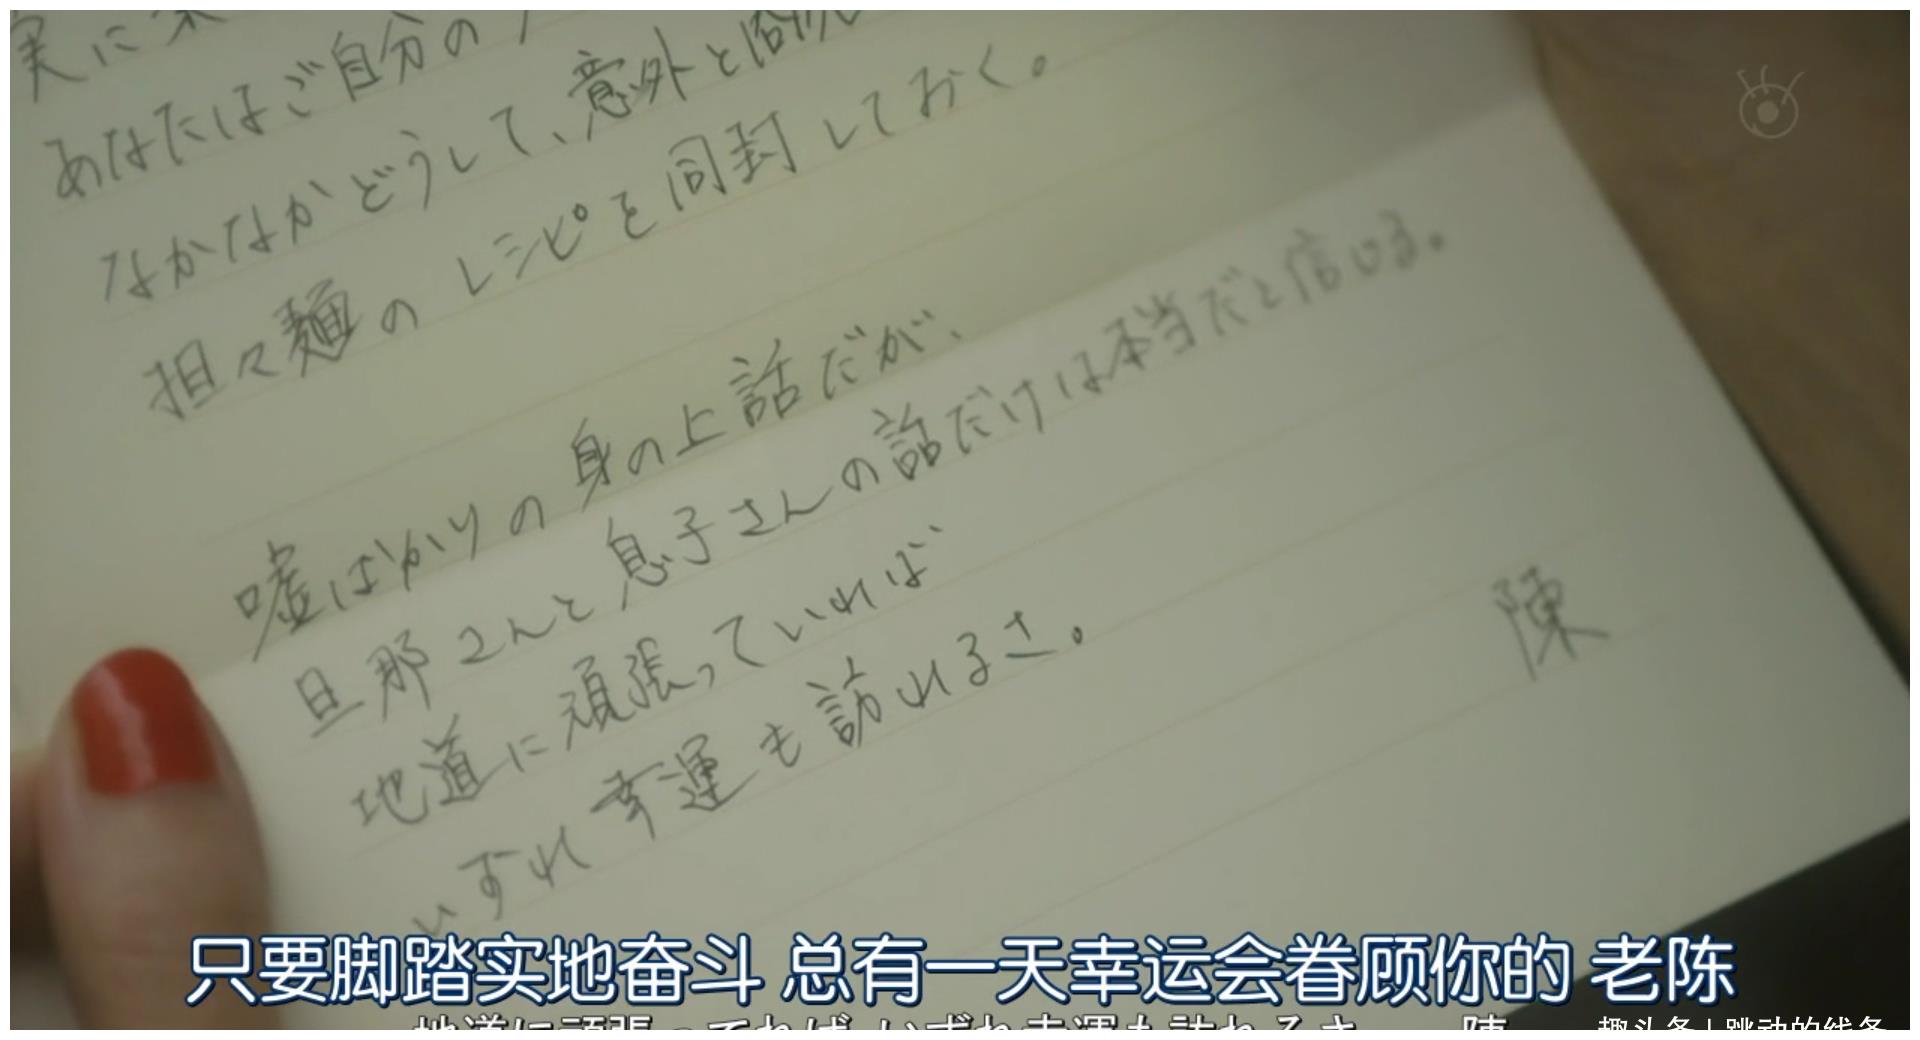 実に
あなたはご自分の
なかなかどうして、意外と
担々麺のレシピを同封しておく。
嘘ばかりの身の上話だが、
旦那さんと息子さんの話だけは本当だと信じる。
地道に頑張っていれば
いずれ幸運も訪れるさ。
陳
只要脚踏实地奋斗 总有一天幸运会眷顾你的 老陈
地道に頑張ってれば いずれ幸運も訪れるさ 陳
趣头条 | 跳动的线条